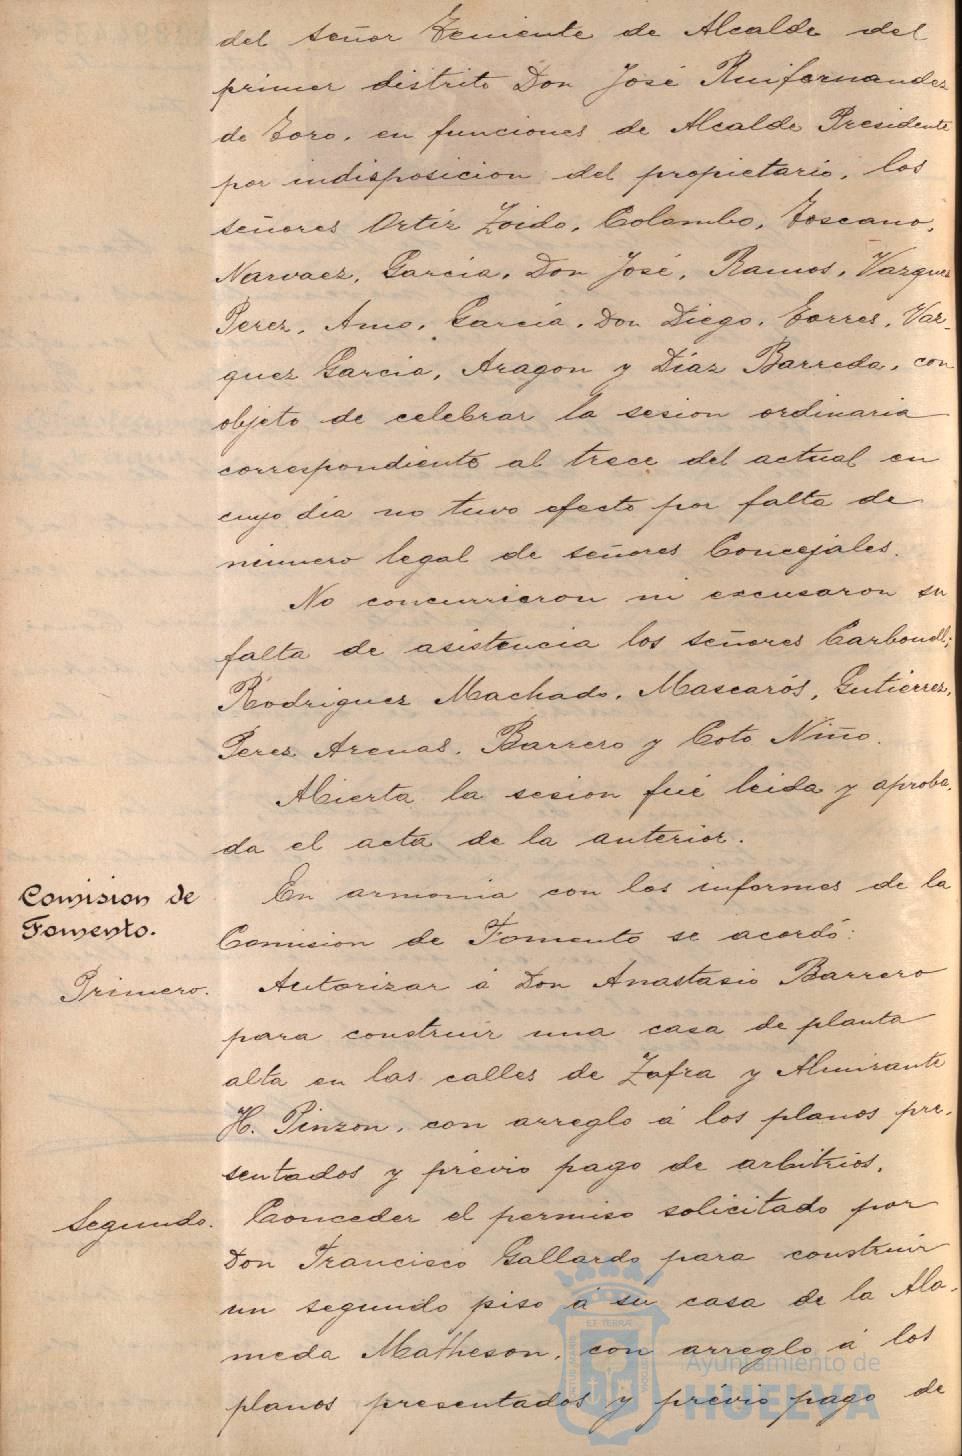 del señor Teniente de Alcalde del
primer distrito Don José Ruifernandez
de Toro, en funciones de Alcalde Presidente
por indisposicion del propietario, los
señores Ortiz Zoido, Colombo, Toscano,
Narvaez, Garcia, Don José, Ramos, Vazquez
Perez, Amo, Garcia, Don Diego, Torres, Vaz-
quez Garcia, Aragon y Díaz Barreda, con
objeto de celebrar la sesion ordinaria
correspondiente al trece del actual en
cuyo dia no tuvo efecto por falta de
número legal de señores Concejales.
No concurrieron ni excusaron su
falta de asistencia los señores Carbonell,
Rodriguez Machado, Mascarós, Gutierrez,
Perez Arenas, Barrero y Coto Niño.
Abierta la sesion fué leida y aproba-
da el acta de la anterior.
Comision de
Fomento.
En armonia con los informes de la
Comision de Fomento se acordó:
Primero.
Autorizar á Don Anastasio Barrero
para construir una casa de planta
alta en las calles de Zafra y Almirante
H. Pinzon, con arreglo á los planos pre-
sentados y prévio pago de arbitrios.
Segundo.
Conceder el permiso solicitado por
Don Francisco Gallardo para construir
un segundo piso á su casa de la Ala-
meda Matheson, con arreglo á los
planos presentados y prévio pago de
Ayuntamiento de
HUELVA